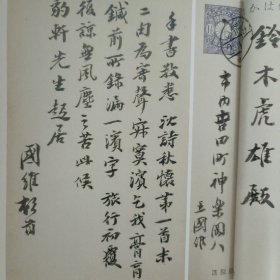 手書敬悉 沈詩秋懷第一首末
二句為寒聲麻冥濱乞我膏肓
鍼前所錄漏一濱字 旅行初獲
後諒無風塵之苦此候
豹軒先生起居
國維頓首
かはゆ
鈴木虎雄殿
市內吉田町神樂岡八
王國維